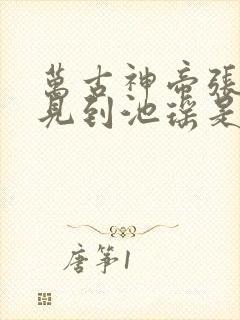 萬古神帝張
見到池瑤是
唐箏1